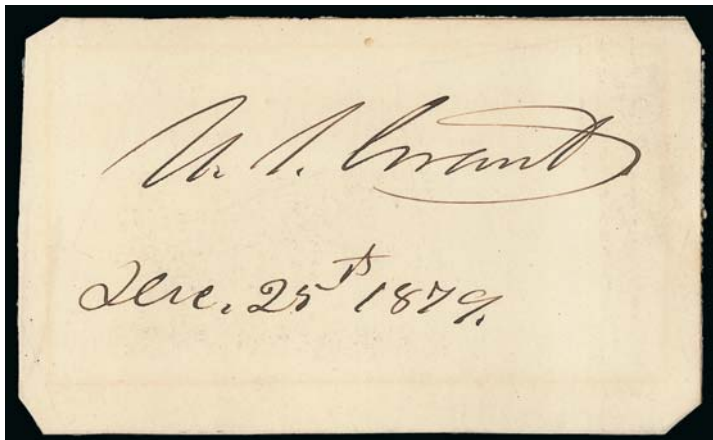 U. S. Grant
Dec. 25th 1879.